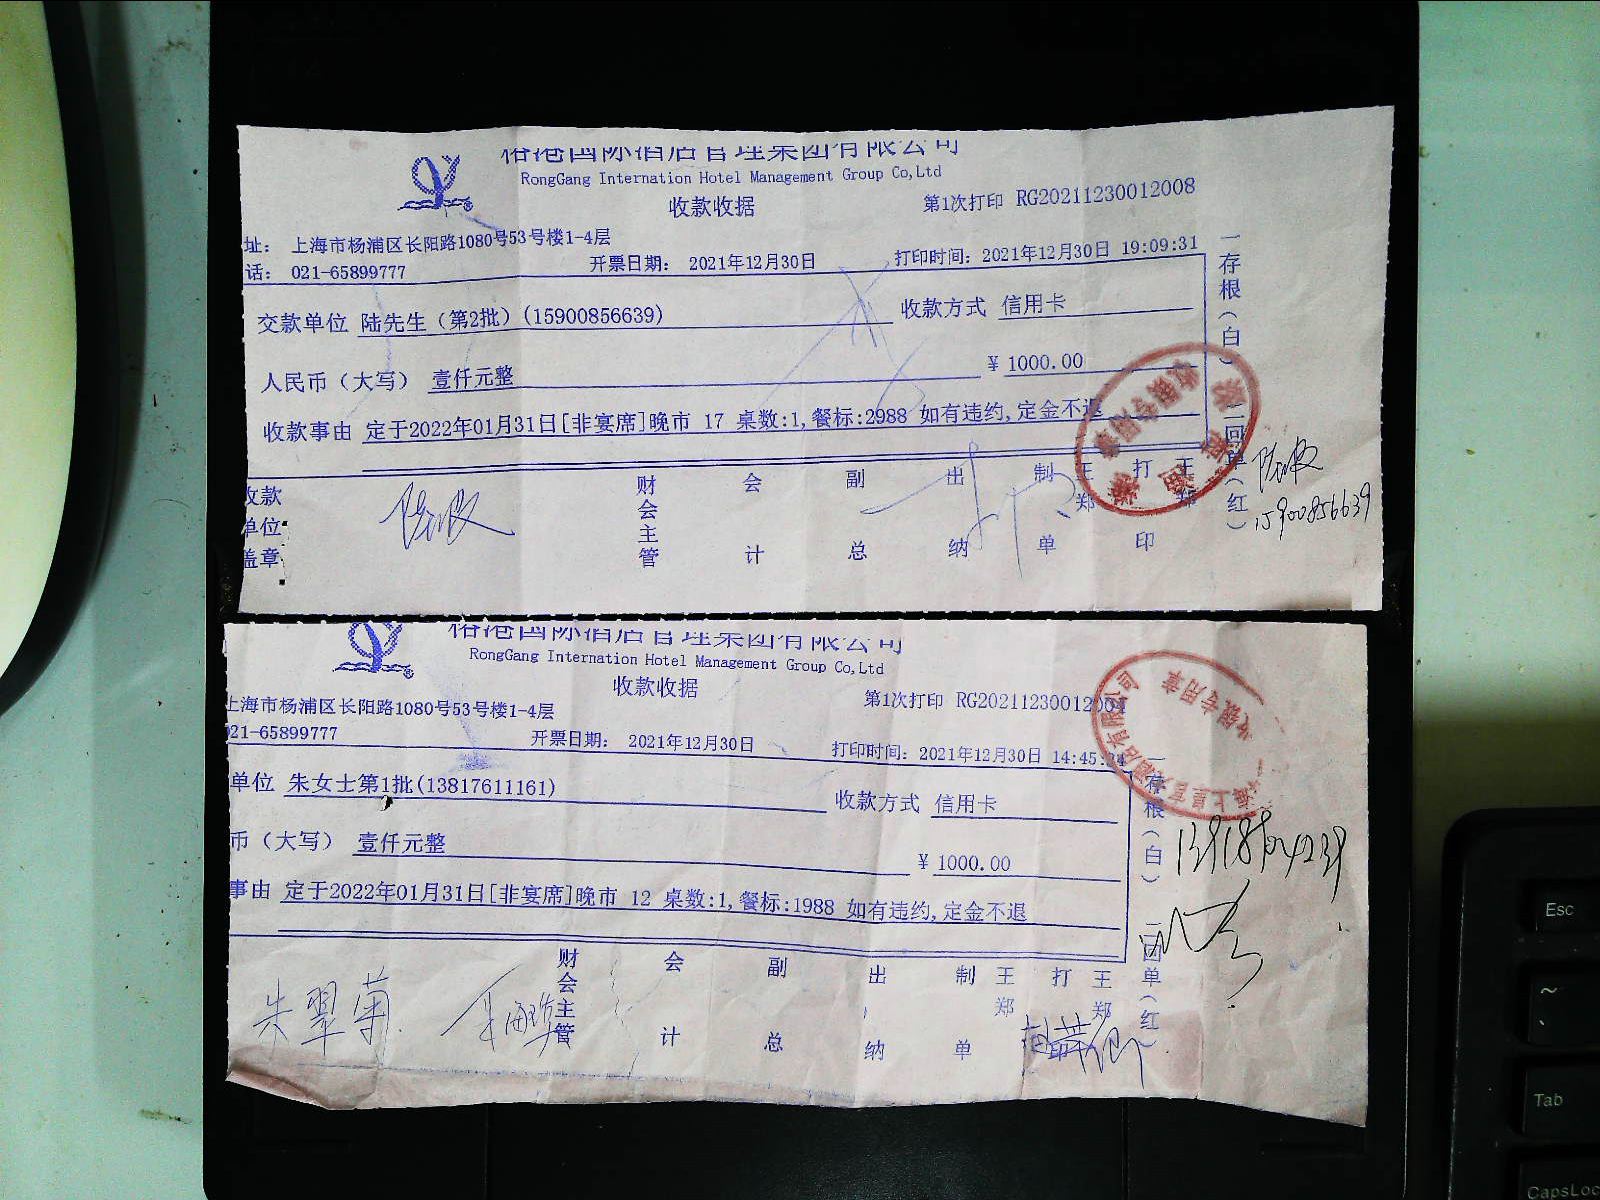 裕港国际酒店管理集团有限公司
RongGang Internation Hotel Management Group Co,Ltd
收款收据
第1次打印 RG20211230012008
址： 上海市杨浦区长阳路1080号53号楼1-4层
话： 021-65899777
开票日期： 2021年12月30日
打印时间：2021年12月30日 19:09:31
交款单位 陆先生（第2批）(15900856639)
收款方式 信用卡
人民币（大写） 壹仟元整
¥ 1000.00
收款事由 定于2022年01月31日[非宴席]晚市 17 桌数:1,餐标:2988 如有违约,定金不退
收款单位盖章
财会主管
会计
副总
出纳
制单
王郑
打印
王郑
一存根（白）二回单（红）
收银专用章
15900856639
裕港国际酒店管理集团有限公司
RongGang Internation Hotel Management Group Co,Ltd
收款收据
第1次打印 RG20211230012004
上海市杨浦区长阳路1080号53号楼1-4层
021-65899777
开票日期： 2021年12月30日
打印时间：2021年12月30日 14:45:
单位 朱女士第1批(13817611161)
收款方式 信用卡
币（大写） 壹仟元整
¥ 1000.00
事由 定于2022年01月31日[非宴席]晚市 12 桌数:1,餐标:1988 如有违约,定金不退
朱翠菊
财会主管
会计
副总
出纳
制单
王郑
打印
王郑
一存根（白）二回单（红）
收银专用章
Esc
~
Tab
CapsLoc